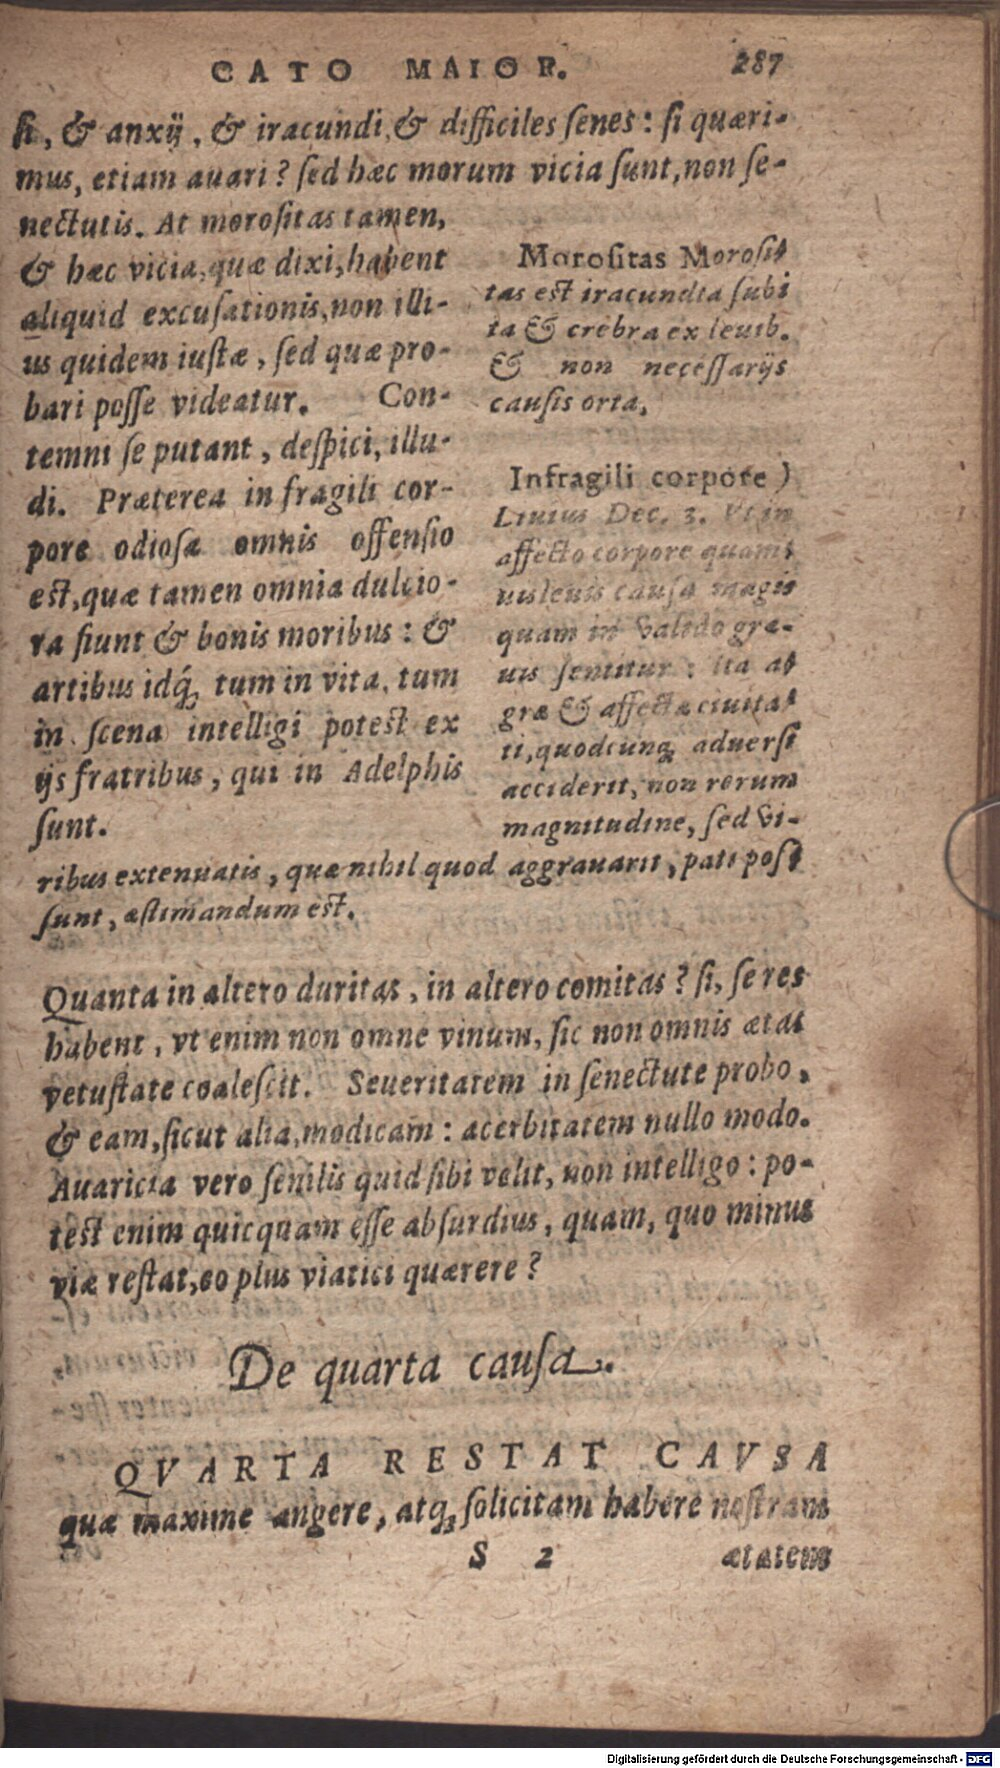 CATO MAIOR. 287
ſi, & anxij, & iracundi, & difficiles ſenes: ſi quæri-
mus, etiam auari? ſed hæc morum vicia ſunt, non ſe-
nectutis. At moroſitas tamen,
& hæc vicia, quæ dixi, habent
aliquid excuſationis, non illi-
us quidem iuſtæ, ſed quæ pro-
bari poſſe videatur. Con-
temni ſe putant, deſpici, illu-
di. Præterea in fragili cor-
pore odioſa omnis offenſio
eſt, quæ tamen omnia dulcio-
ra fiunt & bonis moribus: &
artibus idq́; tum in vita, tum
in ſcena intelligi poteſt ex
ijs fratribus, qui in Adelphis
ſunt.
Moroſitas Moroſi
tas eſt iracundia ſubi
ta & crebra ex leuib.
& non neceſſarijs
cauſis orta.
Infragili corpore)
Liuius Dec. 3. Vt in
affecto corpore quam
uisleuis cauſa magis
quam in valido gra-
uis ſentitur: ita æ
græ & affectæ ciuita
ti, quodcunq; aduerſi
acciderit, non rerum
magnitudine, ſed vi-
ribus extenuatis, quæ nihil quod aggrauarit, pati poſ
ſunt, æſtimandum eſt.
Quanta in altero duritas, in altero comitas? ſi, ſe res
habent, vt enim non omne vinum, ſic non omnis ætas
vetuſtate coaleſcit. Seueritatem in ſenectute probo,
& eam, ſicut alia, modicam: acerbitatem nullo modo.
Auaricia vero ſenilis quid ſibi velit, non intelligo: po-
teſt enim quicquam eſſe abſurdius, quam, quo minus
viæ reſtat, eo plus viatici quærere?
De quarta cauſa.
QVARTA RESTAT CAVSA
quæ maxime angere, atq; ſolicitam habere noſtram
S 2 ætatem
Digitalisierung gefördert durch die Deutsche Forschungsgemeinschaft - DFG